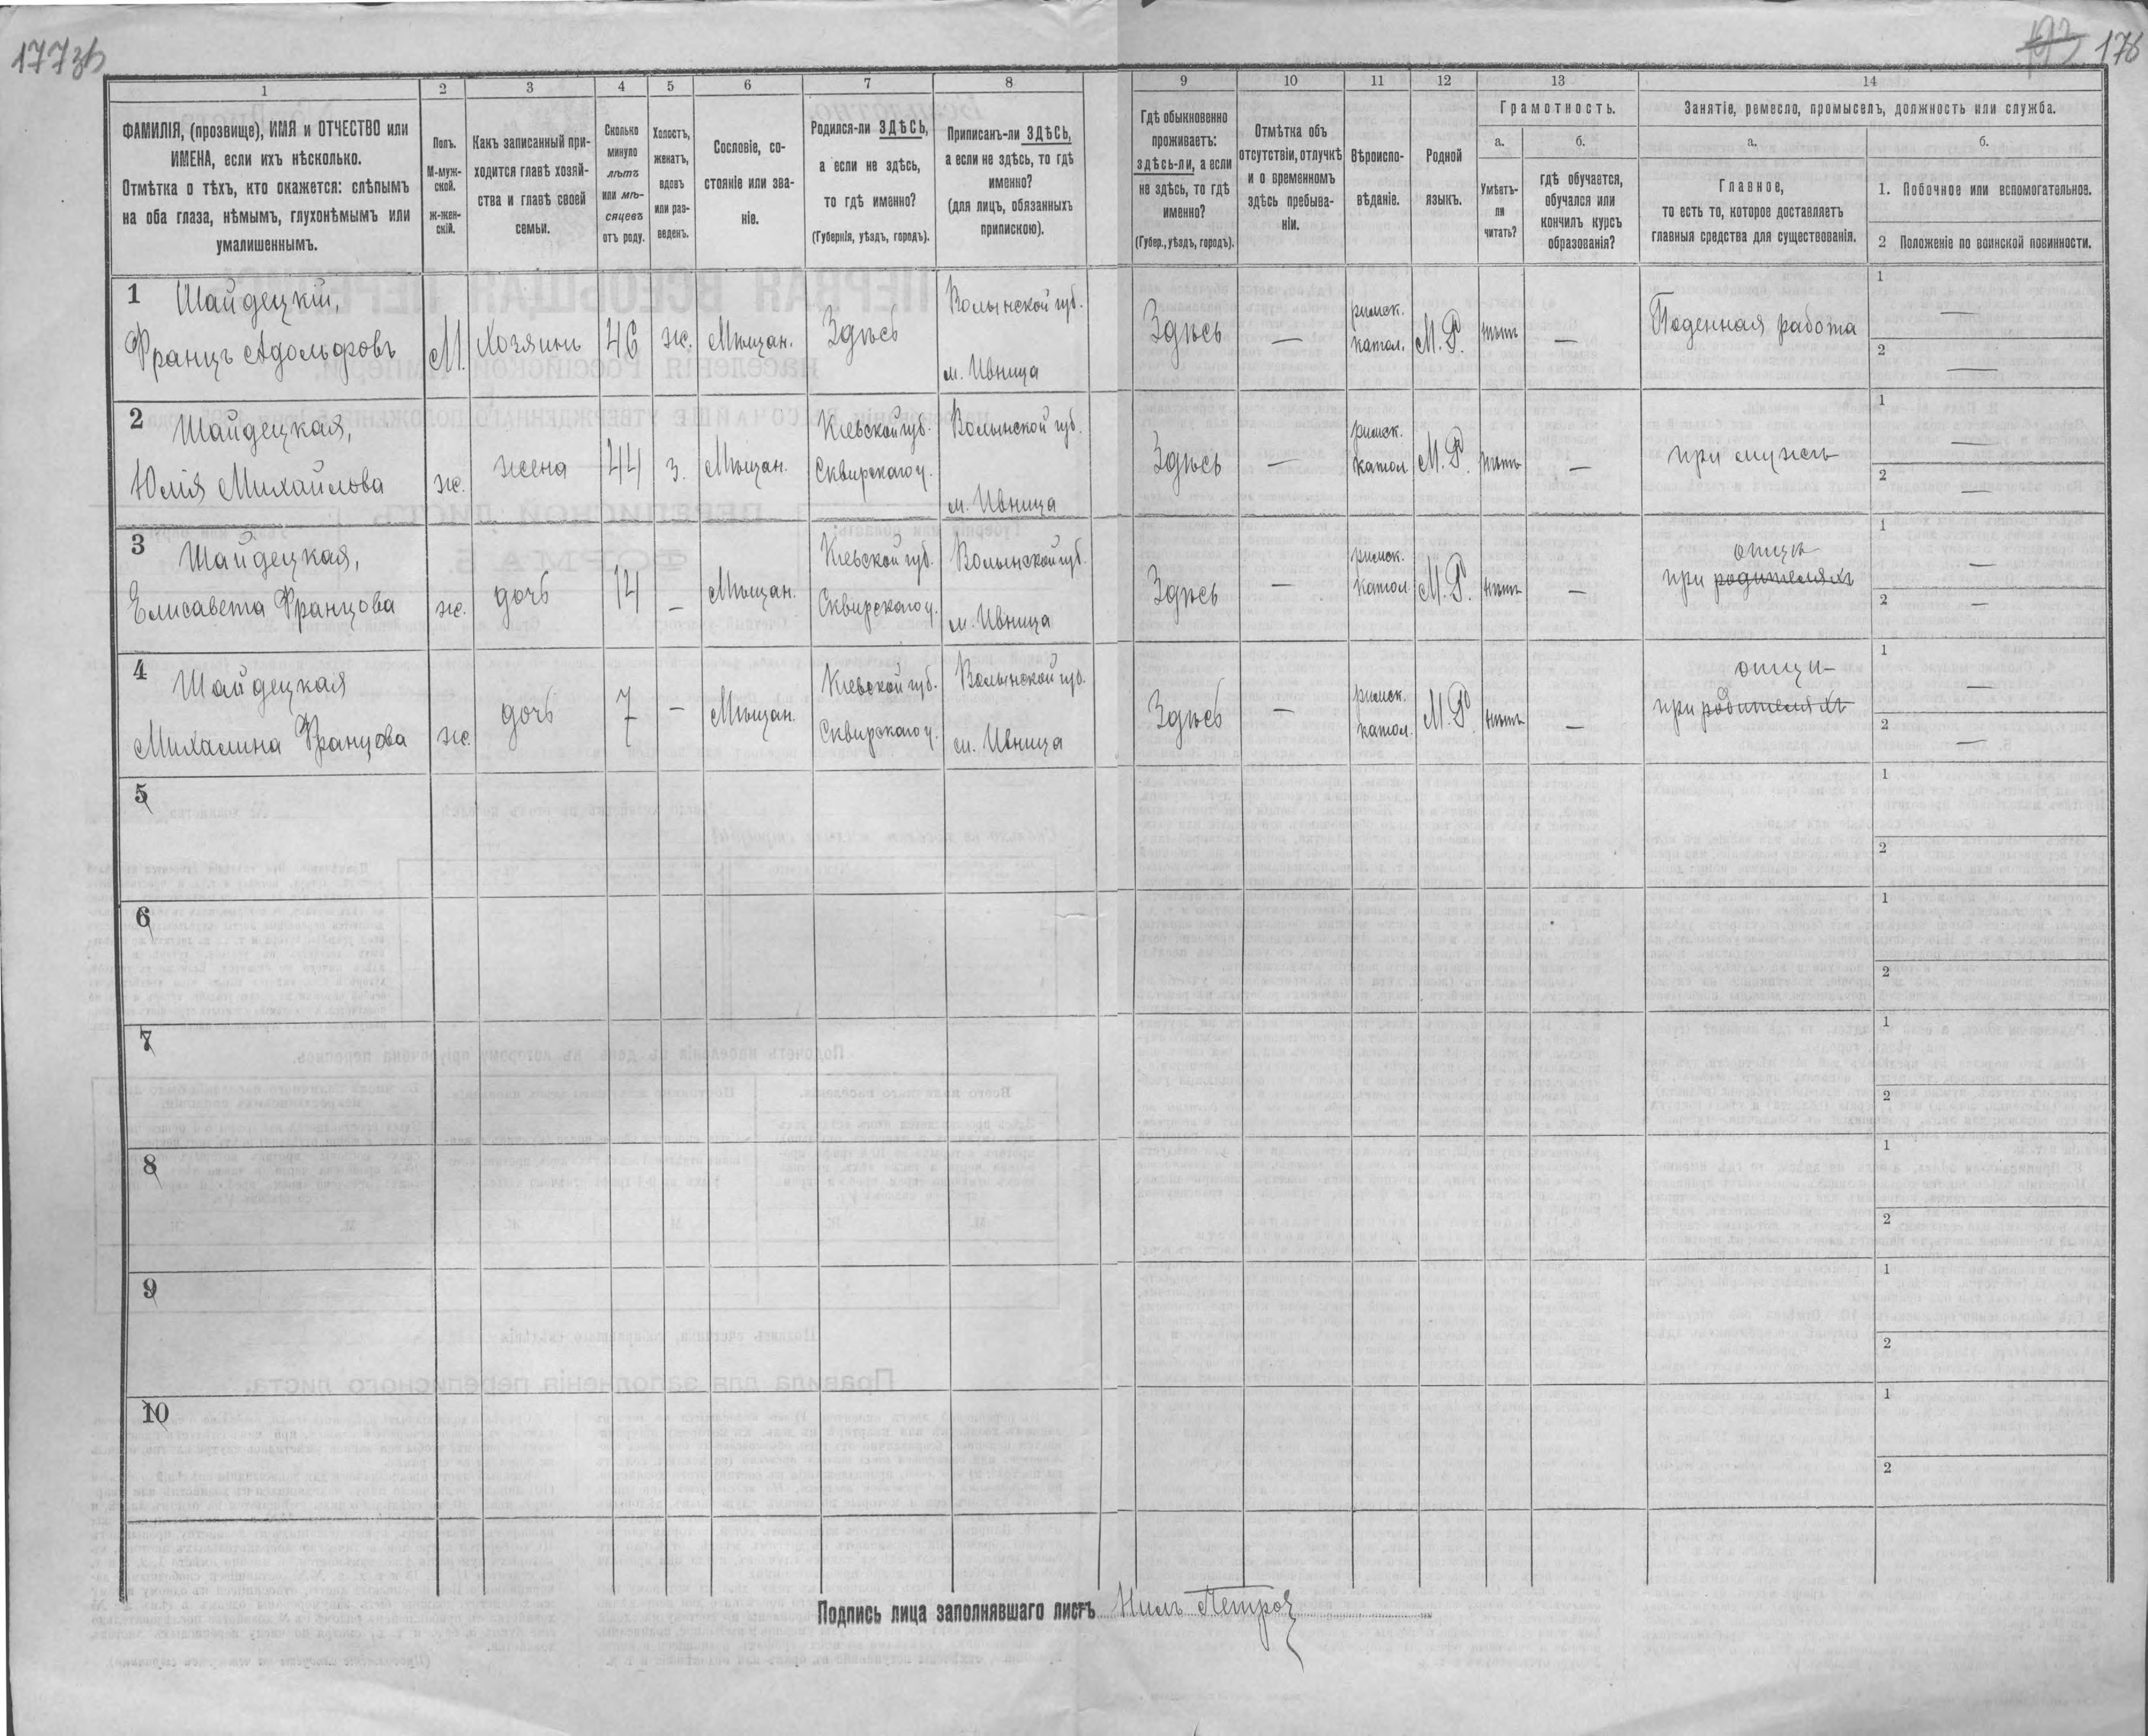 177зв
192 176
1 2 3 4 5 6 7 8 9 10 11 12 13 14
ФАМИЛІЯ, (прозвище), ИМЯ и ОТЧЕСТВО или
ИМЕНА, если ихъ нѣсколько.
Отмѣтка о тѣхъ, кто окажется: слѣпымъ
на оба глаза, нѣмымъ, глухонѣмымъ или
умалишеннымъ.
Полъ.
М-муж-
ской.
Ж-жен-
скій.
Какъ записанный при-
ходится главѣ хозяй-
ства и главѣ своей
семьи.
Сколько
минуло
лѣтъ
или мѣ-
сяцевъ
отъ роду.
Холостъ,
женатъ,
вдовъ
или раз-
веденъ.
Сословіе, со-
стояніе или зва-
ніе.
Родился-ли ЗДѢСЬ,
а если не здѣсь,
то гдѣ именно?
(Губернія, уѣздъ, городъ).
Приписанъ-ли ЗДѢСЬ,
а если не здѣсь, то гдѣ
именно?
(для лицъ, обязанныхъ
припискою).
Гдѣ обыкновенно
проживаетъ:
здѣсь-ли, а если
не здѣсь, то гдѣ
именно?
(Губер., уѣздъ, городъ).
Отмѣтка объ
отсутствіи, отлучкѣ
и о временномъ
здѣсь пребыва-
ніи.
Вѣроиспо-
вѣданіе.
Родной
языкъ.
Грамотность.
а.
Умѣетъ-
ли
читать?
б.
гдѣ обучается,
обучался или
кончилъ курсъ
образованія?
Занятіе, ремесло, промыселъ, должность или служба.
а.
Главное,
то есть то, которое доставляетъ
главныя средства для существованія.
б.
1. Побочное или вспомогательное.
2 Положеніе по воинской повинности.
1 Шайдецкій,
Францъ Адольфовъ
М.
Хозяинъ
46
ж.
Мѣщан.
Здѣсь
Волынской губ.
м. Ивница
Здѣсь
—
римск.
катол.
М. Р.
нѣтъ
—
Поденная работа
1 —
2 —
2 Шайдецкая,
Юлія Михайлова
ж.
жена
44
з.
Мѣщан.
Кіевской губ.
Сквирскаго у.
Волынской губ.
м. Ивница
Здѣсь
—
римск.
катол.
М. Р.
нѣтъ
—
при мужѣ
1 —
2 —
3 Шайдецкая,
Елисавета Францова
ж.
дочь
14
—
Мѣщан.
Кіевской губ.
Сквирскаго у.
Волынской губ.
м. Ивница
Здѣсь
—
римск.
катол.
М. Р.
нѣтъ
—
отцѣ
при родителяхъ
1 —
2 —
4 Шайдецкая
Михалина Францова
ж.
дочь
7
—
Мѣщан.
Кіевской губ.
Сквирскаго у.
Волынской губ.
м. Ивница
Здѣсь
—
римск.
катол.
М. Р.
нѣтъ
—
отцѣ
при родителяхъ
1 —
2 —
5
1
2
6
1
2
7
1
2
8
1
2
9
1
2
10
1
2
Подпись лица заполнявшаго листъ Нилъ Петров